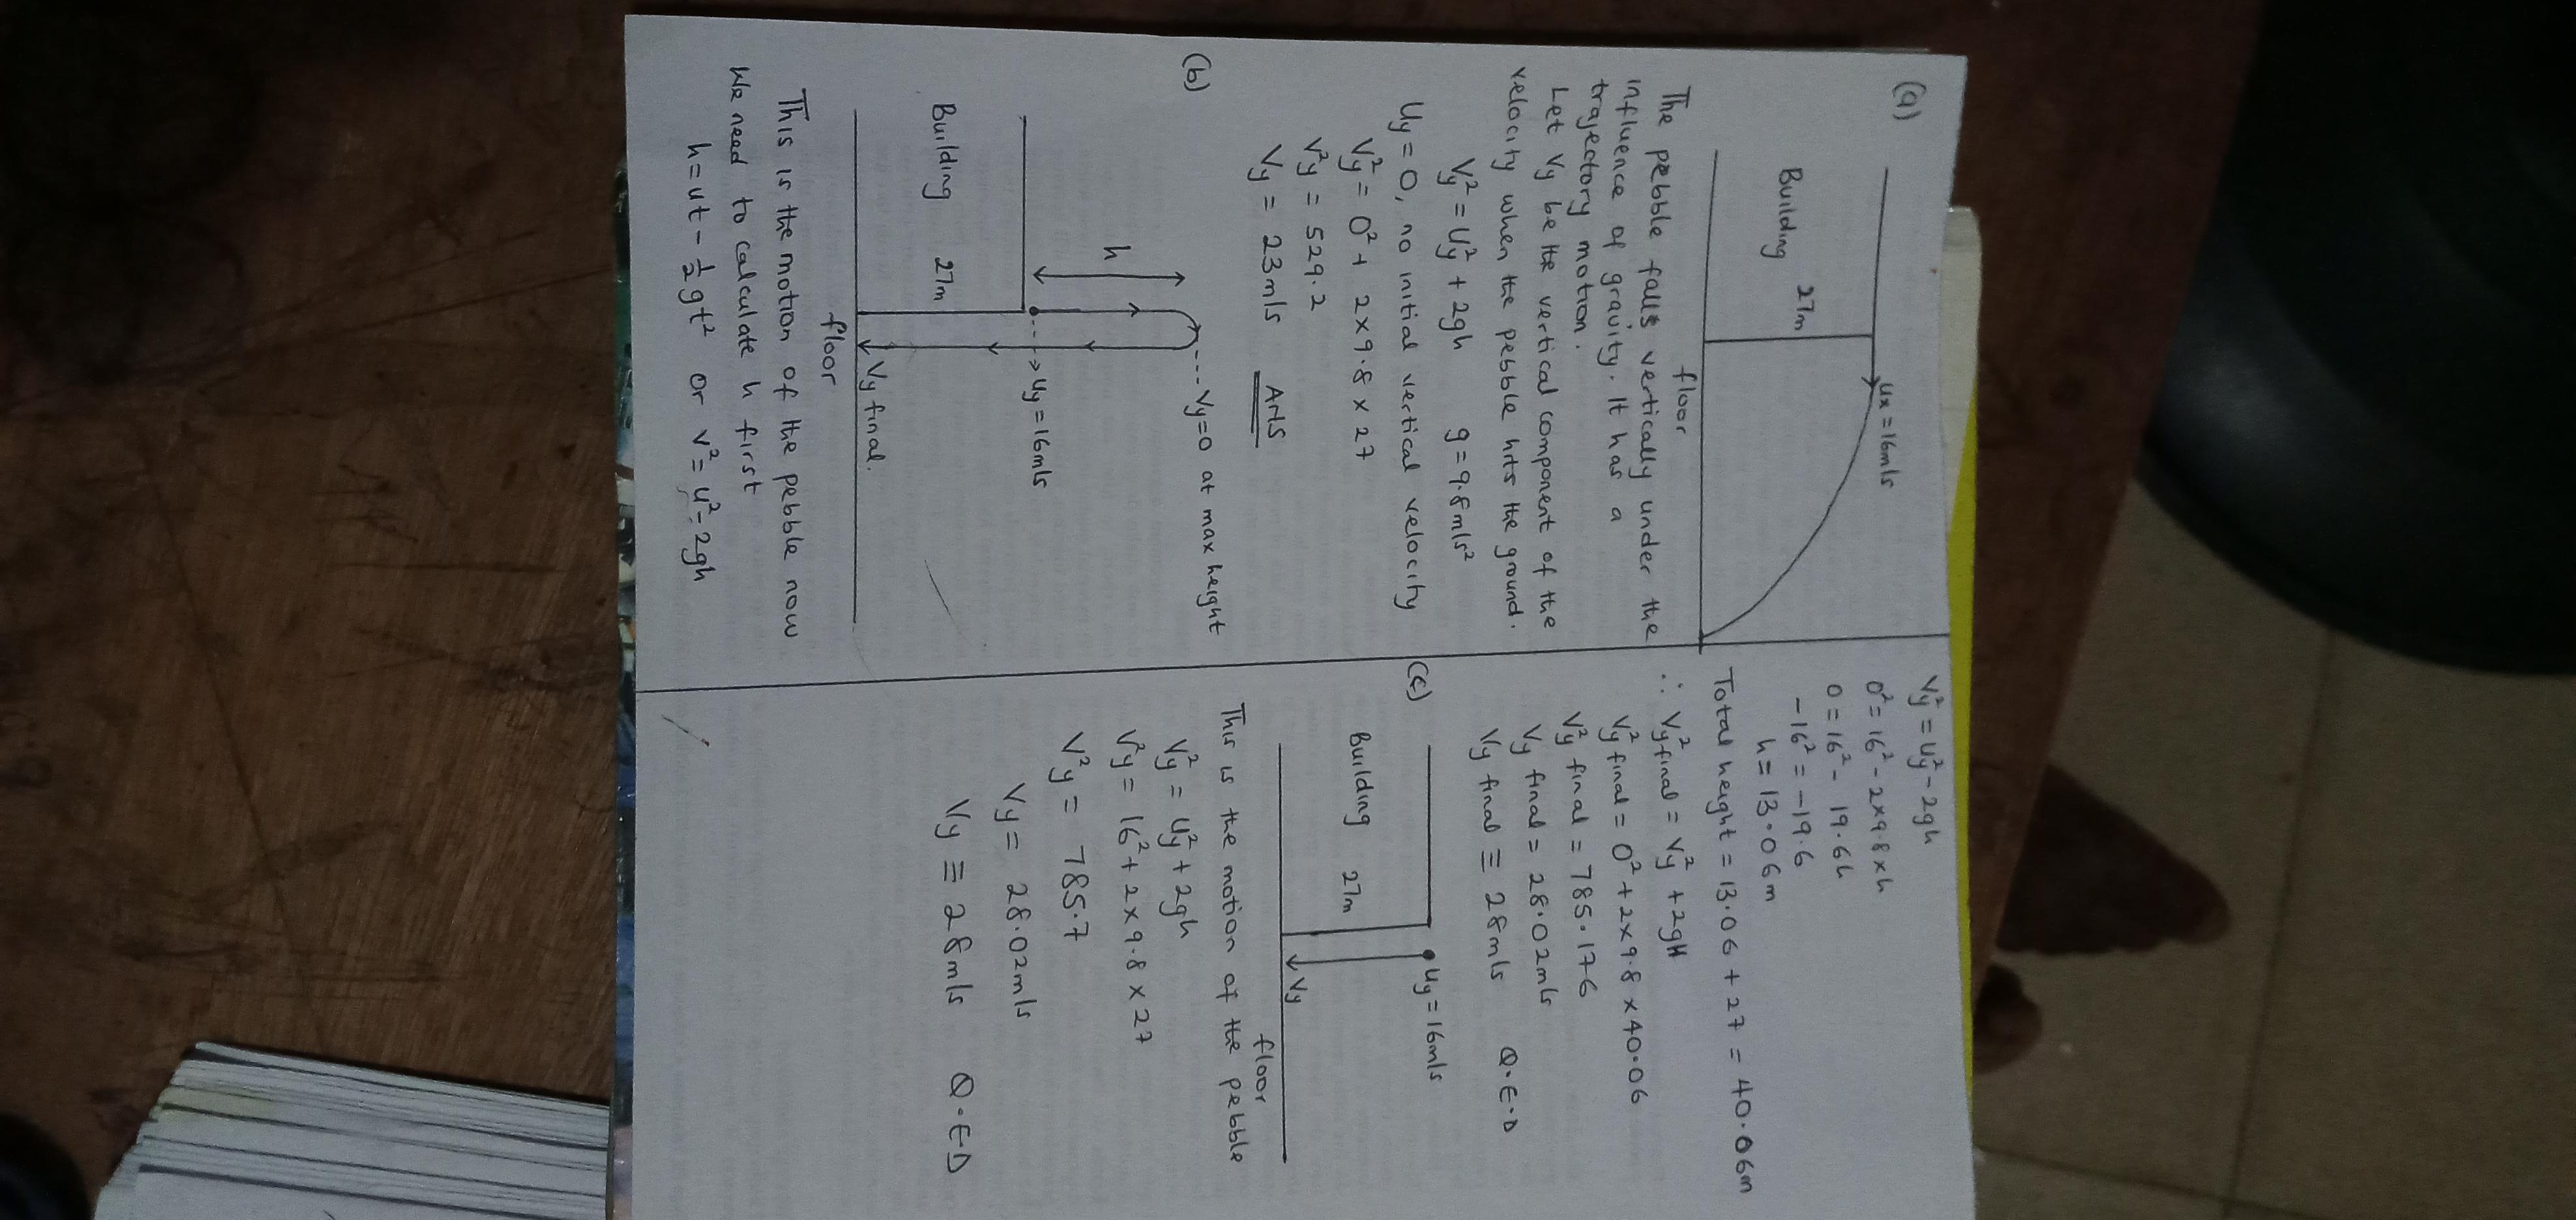 (a)
Ux = 16m/s
Building 27m
floor
The pebble falls vertically under the
influence of gravity. It has a
trajectory motion.
Let Vy be the vertical component of the
velocity when the pebble hits the ground.
Vy² = Uy² + 2gh g = 9.8m/s²
Uy = 0, no initial vertical velocity
Vy² = 0² + 2×9.8×27
V²y = 529.2
Vy = 23m/s ANS
(b)
Vy=0 at max height
h
Uy=16m/s
Building 27m
Vy final.
floor
This is the motion of the pebble now
We need to calculate h first
h = ut - ½gt² or v² = u² - 2gh
Vy² = Uy² - 2gh
0² = 16² - 2×9.8×h
0 = 16² - 19.6h
-16² = -19.6
h = 13.06m
Total height = 13.06 + 27 = 40.06m
∴ Vy²final = Vy² + 2gH
Vy²final = 0² + 2×9.8×40.06
V²y final = 785.176
Vy final = 28.02m/s
Vy final ≡ 28m/s Q.E.D
(c)
Uy = 16m/s
Building 27m
Vy
floor
This is the motion of the pebble
Vy² = Uy² + 2gh
V²y = 16² + 2×9.8×27
V²y = 785.7
Vy = 28.02m/s
Vy ≡ 28m/s Q.E.D